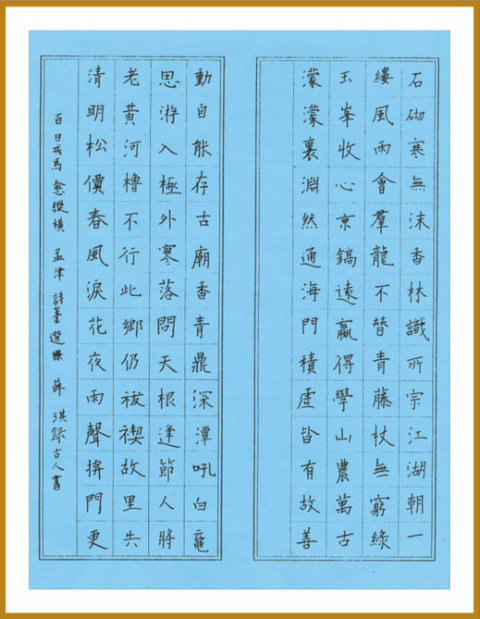 石砌寒無沫香林識所宗江湖朝一
縷風雨會羣龍不替青藤杖無窮綠
玉峯收心京鎬遠贏得學山農萬古
濛濛裏淵然通海門積虛皆有故善
動自能存古廟香青鼎深潭吼白黿
思游入極外寥落問天根逢節人將
老黃河櫓不行此鄉仍祓禊故里共
清明松價春風淚花夜雨聲掩門更
百日戎馬愈縱橫孟津詩 選 薛淇錄古人書